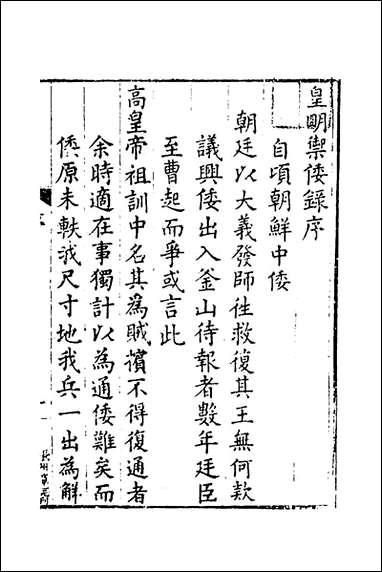 皇明禦倭錄序
自頃朝鮮中倭
朝廷以大義發師徃救復其王無何款
議興倭出入釜山待報者數年廷臣
至曹起而爭或言此
高皇帝祖訓中名其為賊擯不得復通者
余時適在事獨計以為通倭難矣而
倭原未軼我尺寸地我兵一出為解